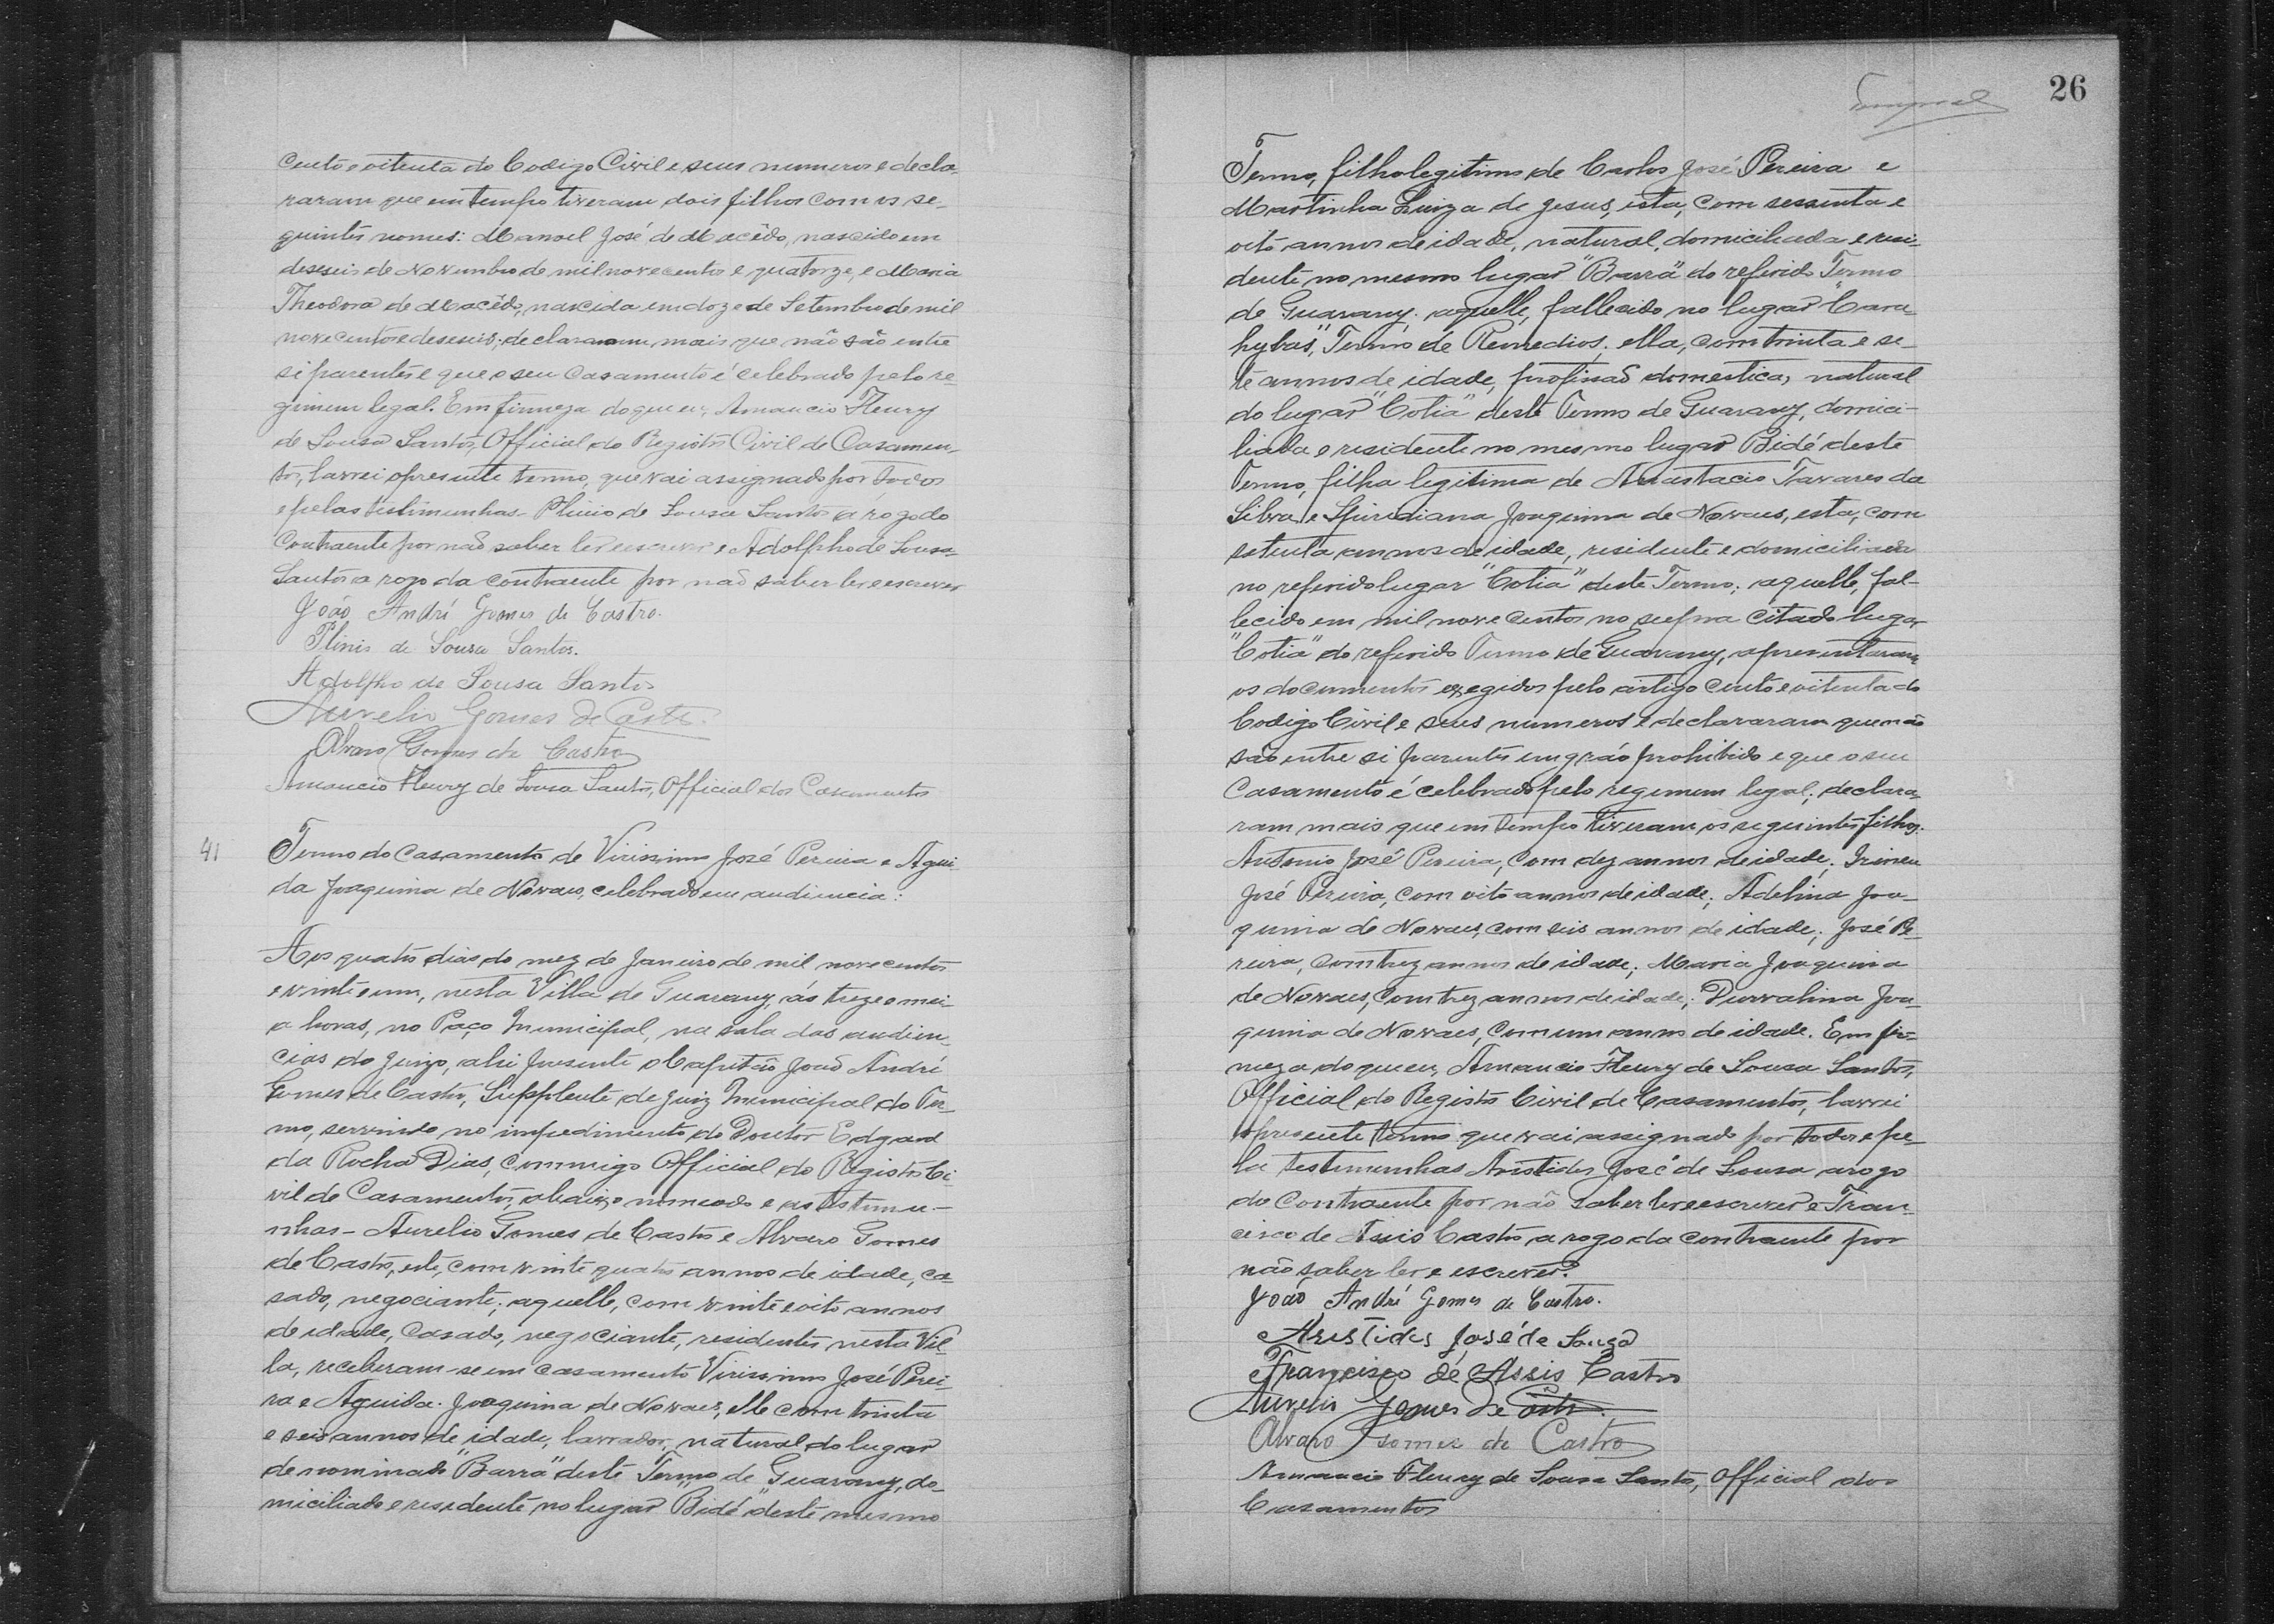 cento e oitenta do Codigo Civil e seus numeros e decla-
raram que em tempo tiveram dois filhos com os se-
guintes nomes: Manoel José de Macêdo, nascido em
deseseis de Novembro de mil novecentos e quatorze, e Maria
Theodora de Macêdo, nascida em doze de Setembro de mil
novecentos e deseseis; declararam mais que não são entre
si parentes e que o seu casamento é celebrado pelo re-
gimem legal. Em firmeza do que eu, Amancio Fleury
de Sousa Santos, Official do Registro Civil de Casamen-
tos, lavrei o presente termo, que vai assignado por todos
e pelas testimunhas - Plinio de Sousa Santos a rogo do
Contraente por não saber ler e escrever e Adolpho de Sousa
Santos a rogo da contraente por não saber ler e escrever
João André Gomes de Castro.
Plinio de Sousa Santos.
Adolpho de Sousa Santos
Aurelio Gomes de Castro.
Alvaro Gomes de Castro
Amancio Fleury de Sousa Santos, Official dos Casamentos
41 Termo do Casamento de Virissimo José Pereira e Agui-
da Joaquina de Novaes, celebrado em audiencia:
Aos quatro dias do mez de Janeiro de mil novecentos
e vinte e um, nesta Villa de Guarany, ás treze e mei-
a horas, no Paço Municipal, na sala das audien-
cias do Juizo, ahi presente o Capitão João André
Gomes de Castro, Supplente de Juiz Municipal do Ter-
mo, servindo no impedimento do Doutor Edgard
da Rocha Dias, commigo Official do Registro Ci-
vil de Casamentos, abaixo nomeado e as testimu-
nhas - Aurelio Gomes de Castro e Alvaro Gomes
de Castro, este, com vinte quatro annos de idade, ca-
sado, negociante; aquelle, com vinte e oito annos
de idade, casado, negociante, residentes nesta Vil-
la, receberam-se em casamento Virissimo José Perei-
ra e Aguida Joaquina de Novaes, elle com trinta
e seis annos de idade, lavrador, natural do lugar
denominado "Barra" deste Termo de Guarany, do-
miciliado e residente no lugar "Bidé" deste mesmo
26
Termo, filho legitimo de Carlos José Pereira e
Martinha Luiza de Jesus, esta, com sessenta e
oito annos de idade, natural, domiciliada e resi-
dente no mesmo lugar "Barra" do referido Termo
de Guarany; aquelle, fallecido no lugar "Cara-
hybas", Termo de Remedios; ella, com trinta e se-
te annos de idade, profissão domestica, natural
do lugar "Cotia" deste Termo de Guarany, domici-
liada e residente no mesmo lugar Bidé deste
Termo, filha legitima de Anastacio Tavares da
Silva e Spiridiana Joaquina de Novaes, esta, com
setenta annos de idade, residente e domiciliada
no referido lugar "Cotia" deste Termo; aquelle, fal-
lecido em mil novecentos no supra citado lugar
"Cotia" do referido Termo de Guarany, apresentaram
os documentos exegidos pelo artigo cento e oitenta do
Codigo Civil e seus numeros e declararam que não
são entre si parentes em gráo prohibido e que o seu
Casamento é celebrado pelo regimem legal; declara-
ram mais que em tempo tiveram os seguintes filhos:
Antonio José Pereira, com dez annos de idade; Irineu
José Pereira, com oito annos de idade; Adelina Joa-
quina de Novaes, com seis annos de idade; José Pe-
reira, com trez annos de idade; Maria Joaquina
de Novaes, com trez annos de idade; Durvalina Joa-
quina de Novaes, com um anno de idade. Em fir-
meza do que eu, Amancio Fleury de Sousa Santos,
Official do Registro Civil de Casamentos, lavrei
o presente termo que vai assignado por todos e pe-
la testimunhas Aristides José de Sousa a rogo
do Contraente por não saber ler e escrever e Fran-
cisco de Assis Castro a rogo da contraente por
não saber ler e escrever.
João André Gomes de Castro.
Aristides José de Souza
Francisco de Assis Castro
Aurelio Gomes de Castro.
Alvaro Gomes de Castro
Amancio Fleury de Sousa Santos, Official dos
Casamentos